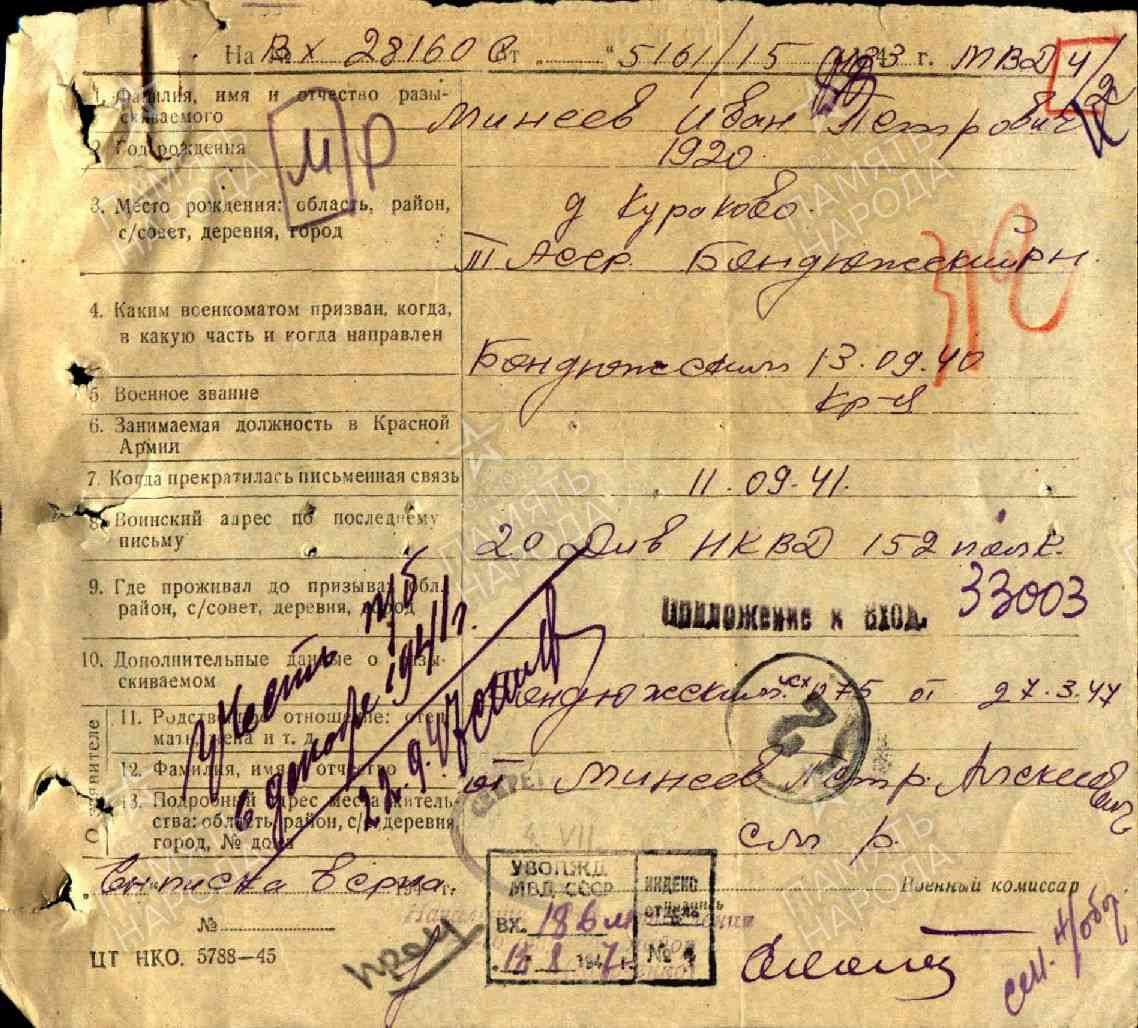 На № Вх 28160 с от „ 5161/15 г. МВД 4/2
1. Фамилия, имя и отчество разы-
скиваемого Минеев Иван Петрович
2. Год рождения 1920
М Р
3. Место рождения: область, район,
с/совет, деревня, город
д Кураково.
ТАССР. Бондюжский рн.
4. Каким военкоматом призван, когда,
в какую часть и когда направлен
Бондюжским 13.09.40
5 Военное звание Кр-ц
6. Занимаемая должность в Красной
Армии
7. Когда прекратилась письменная связь 11.09.41.
8. Воинский адрес по последнему
письму 20 Див НКВД 152 полк.
9. Где проживал до призыва: обл.
район, с/совет, деревня, город
Приложение к вход. 33003
10. Дополнительные данные о разы-
скиваемом
Бендюжским исх 275 от 27.3.47
Учесть п/б
в декабре 1941 г.
22.9.47
О заявителе
11. Родственное отношение: отец
мать, жена и т. д. от
12. Фамилия, имя, отчество Минеев Петр Алексеевич
13. Подробный адрес места житель-
ства: область, район, с/с, деревня
город, № дома см р.
2
СЕКРЕТ
4 VII
Выписка верна г.
Военный комиссар
УВОПЖД
МВД СССР
ВХ. 18
1947 г.
ИНДЕКС
ОТДЕЛА
№ 4
подпись
№
ЦТ НКО. 5788—45
см. н/обор
ПАМЯТЬ
НАРОДА